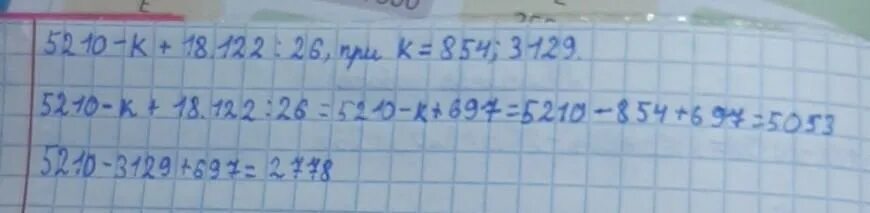 5210-к + 18.122 : 26, при к = 854; 3129.
5210-к + 18.122 : 26 = 5210-к+697=5210-854+697=5053
5210-3129+697= 2778